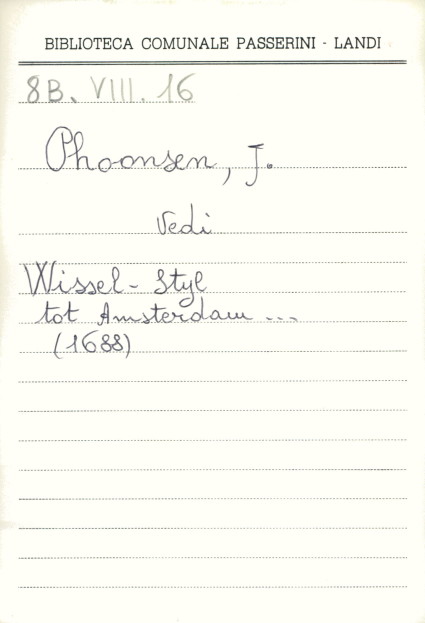 BIBLIOTECA COMUNALE PASSERINI - LANDI
8B. VIII. 16
Phoonsen, J.
Vedi
Wissel- Styl
tot Amsterdam ...
(1688)